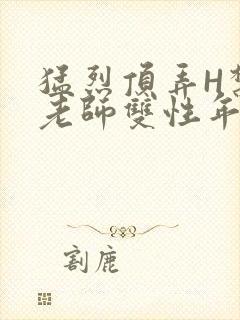 猛烈頂弄H
老師雙性年
割鹿